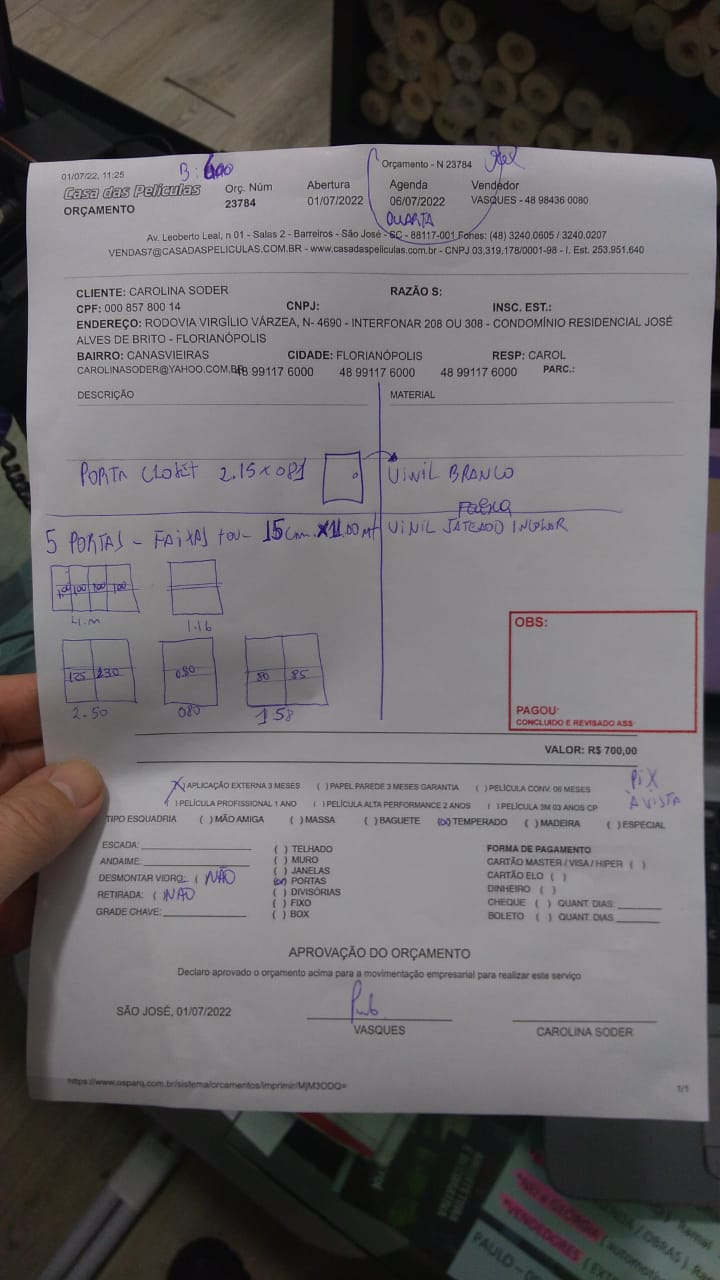 01/07/22, 11:25
B:
Orçamento - N 23784
Casa das Películas
ORÇAMENTO
Orç. Núm
23784
Abertura
01/07/2022
Agenda
06/07/2022
QUARTA
Vendedor
VASQUES - 48 98436 0080
Av. Leoberto Leal, n 01 - Salas 2 - Barreiros - São José - SC - 88117-001 Fones: (48) 3240.0605 / 3240.0207
VENDAS7@CASADASPELICULAS.COM.BR - www.casadaspeliculas.com.br - CNPJ 03.319.178/0001-98 - I. Est. 253.951.640
CLIENTE: CAROLINA SODER RAZÃO S:
CPF: 000 857 800 14 CNPJ: INSC. EST.:
ENDEREÇO: RODOVIA VIRGÍLIO VÁRZEA, N- 4690 - INTERFONAR 208 OU 308 - CONDOMÍNIO RESIDENCIAL JOSÉ
ALVES DE BRITO - FLORIANÓPOLIS
BAIRRO: CANASVIEIRAS CIDADE: FLORIANÓPOLIS RESP: CAROL
CAROLINASODER@YAHOO.COM.BR 48 99117 6000 48 99117 6000 48 99117 6000 PARC.:
DESCRIÇÃO MATERIAL
PORTA CLOSET 2.15 x 081 VINIL BRANCO
FAIXA
5 PORTAS - FAIXAS 15 cm. x 11.00 mt VINIL JATEADO INCOLOR
100 100 100 100
4.m 1.16
125 230 080 80 85
2.50 080 1.58
OBS:
PAGOU:
CONCLUIDO E REVISADO ASS:
VALOR: R$ 700,00
(X) APLICAÇÃO EXTERNA 3 MESES ( ) PAPEL PAREDE 3 MESES GARANTIA ( ) PELÍCULA CONV. 06 MESES
PIX
À VISTA
( ) PELÍCULA PROFISSIONAL 1 ANO ( ) PELÍCULA ALTA PERFORMANCE 2 ANOS ( ) PELÍCULA 3M 03 ANOS CP
TIPO ESQUADRIA ( ) MÃO AMIGA ( ) MASSA ( ) BAGUETE (x) TEMPERADO ( ) MADEIRA ( ) ESPECIAL
ESCADA:
ANDAIME:
DESMONTAR VIDRO: ( NÃO
RETIRADA: ( NÃO
GRADE CHAVE:
( ) TELHADO
( ) MURO
( ) JANELAS
(x) PORTAS
( ) DIVISÓRIAS
( ) FIXO
( ) BOX
FORMA DE PAGAMENTO
CARTÃO MASTER / VISA / HIPER ( )
CARTÃO ELO ( )
DINHEIRO ( )
CHEQUE ( ) QUANT. DIAS:
BOLETO ( ) QUANT. DIAS
APROVAÇÃO DO ORÇAMENTO
Declaro aprovado o orçamento acima para a movimentação empresarial para realizar este serviço
SÃO JOSÉ, 01/07/2022
VASQUES CAROLINA SODER
https://www.osparq.com.br/sistema/orcamentos/imprimir/MjM3ODQ= 1/1
VENDEDORES
PAULO